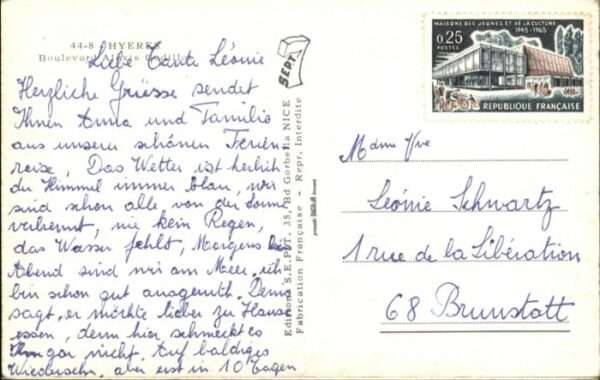 44-8 HYERES
Boulevard
Liebe Tante Léonie
Herzliche Grüsse sendet
Ihnen Anna und Familie
aus unserer schönen Ferien
reise, Das Wetter ist herlich
der Himmel immer blau, wir
sind schon alle, von der Sonne
verbrennt, nie kein Regen,
das Wasser fehlt, Morgens bis
Abend sind wir am Meer, ich
bin schon gut ausgeruth.
sagt, er möchte lieber zu Hause
essen, denn hier schmeckt es
ihm gar nicht. Auf baldiges
Wiedersehn, aber erst in 10 Tagen
SEPT
Editions S.E.P.T. 35, Bd Gorbella NICE
Fabrication Française - Repr. Interdite
MAISONS DES JEUNES ET DE LA CULTURE
1945-1965
0,25
POSTES
REPUBLIQUE FRANÇAISE
Mdme Vve
Léonie Schwartz
1 rue de la Libération
68 Brunstatt